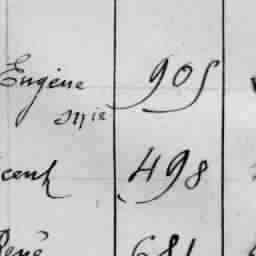 Eugène 905
Mie
cent 498
René 681